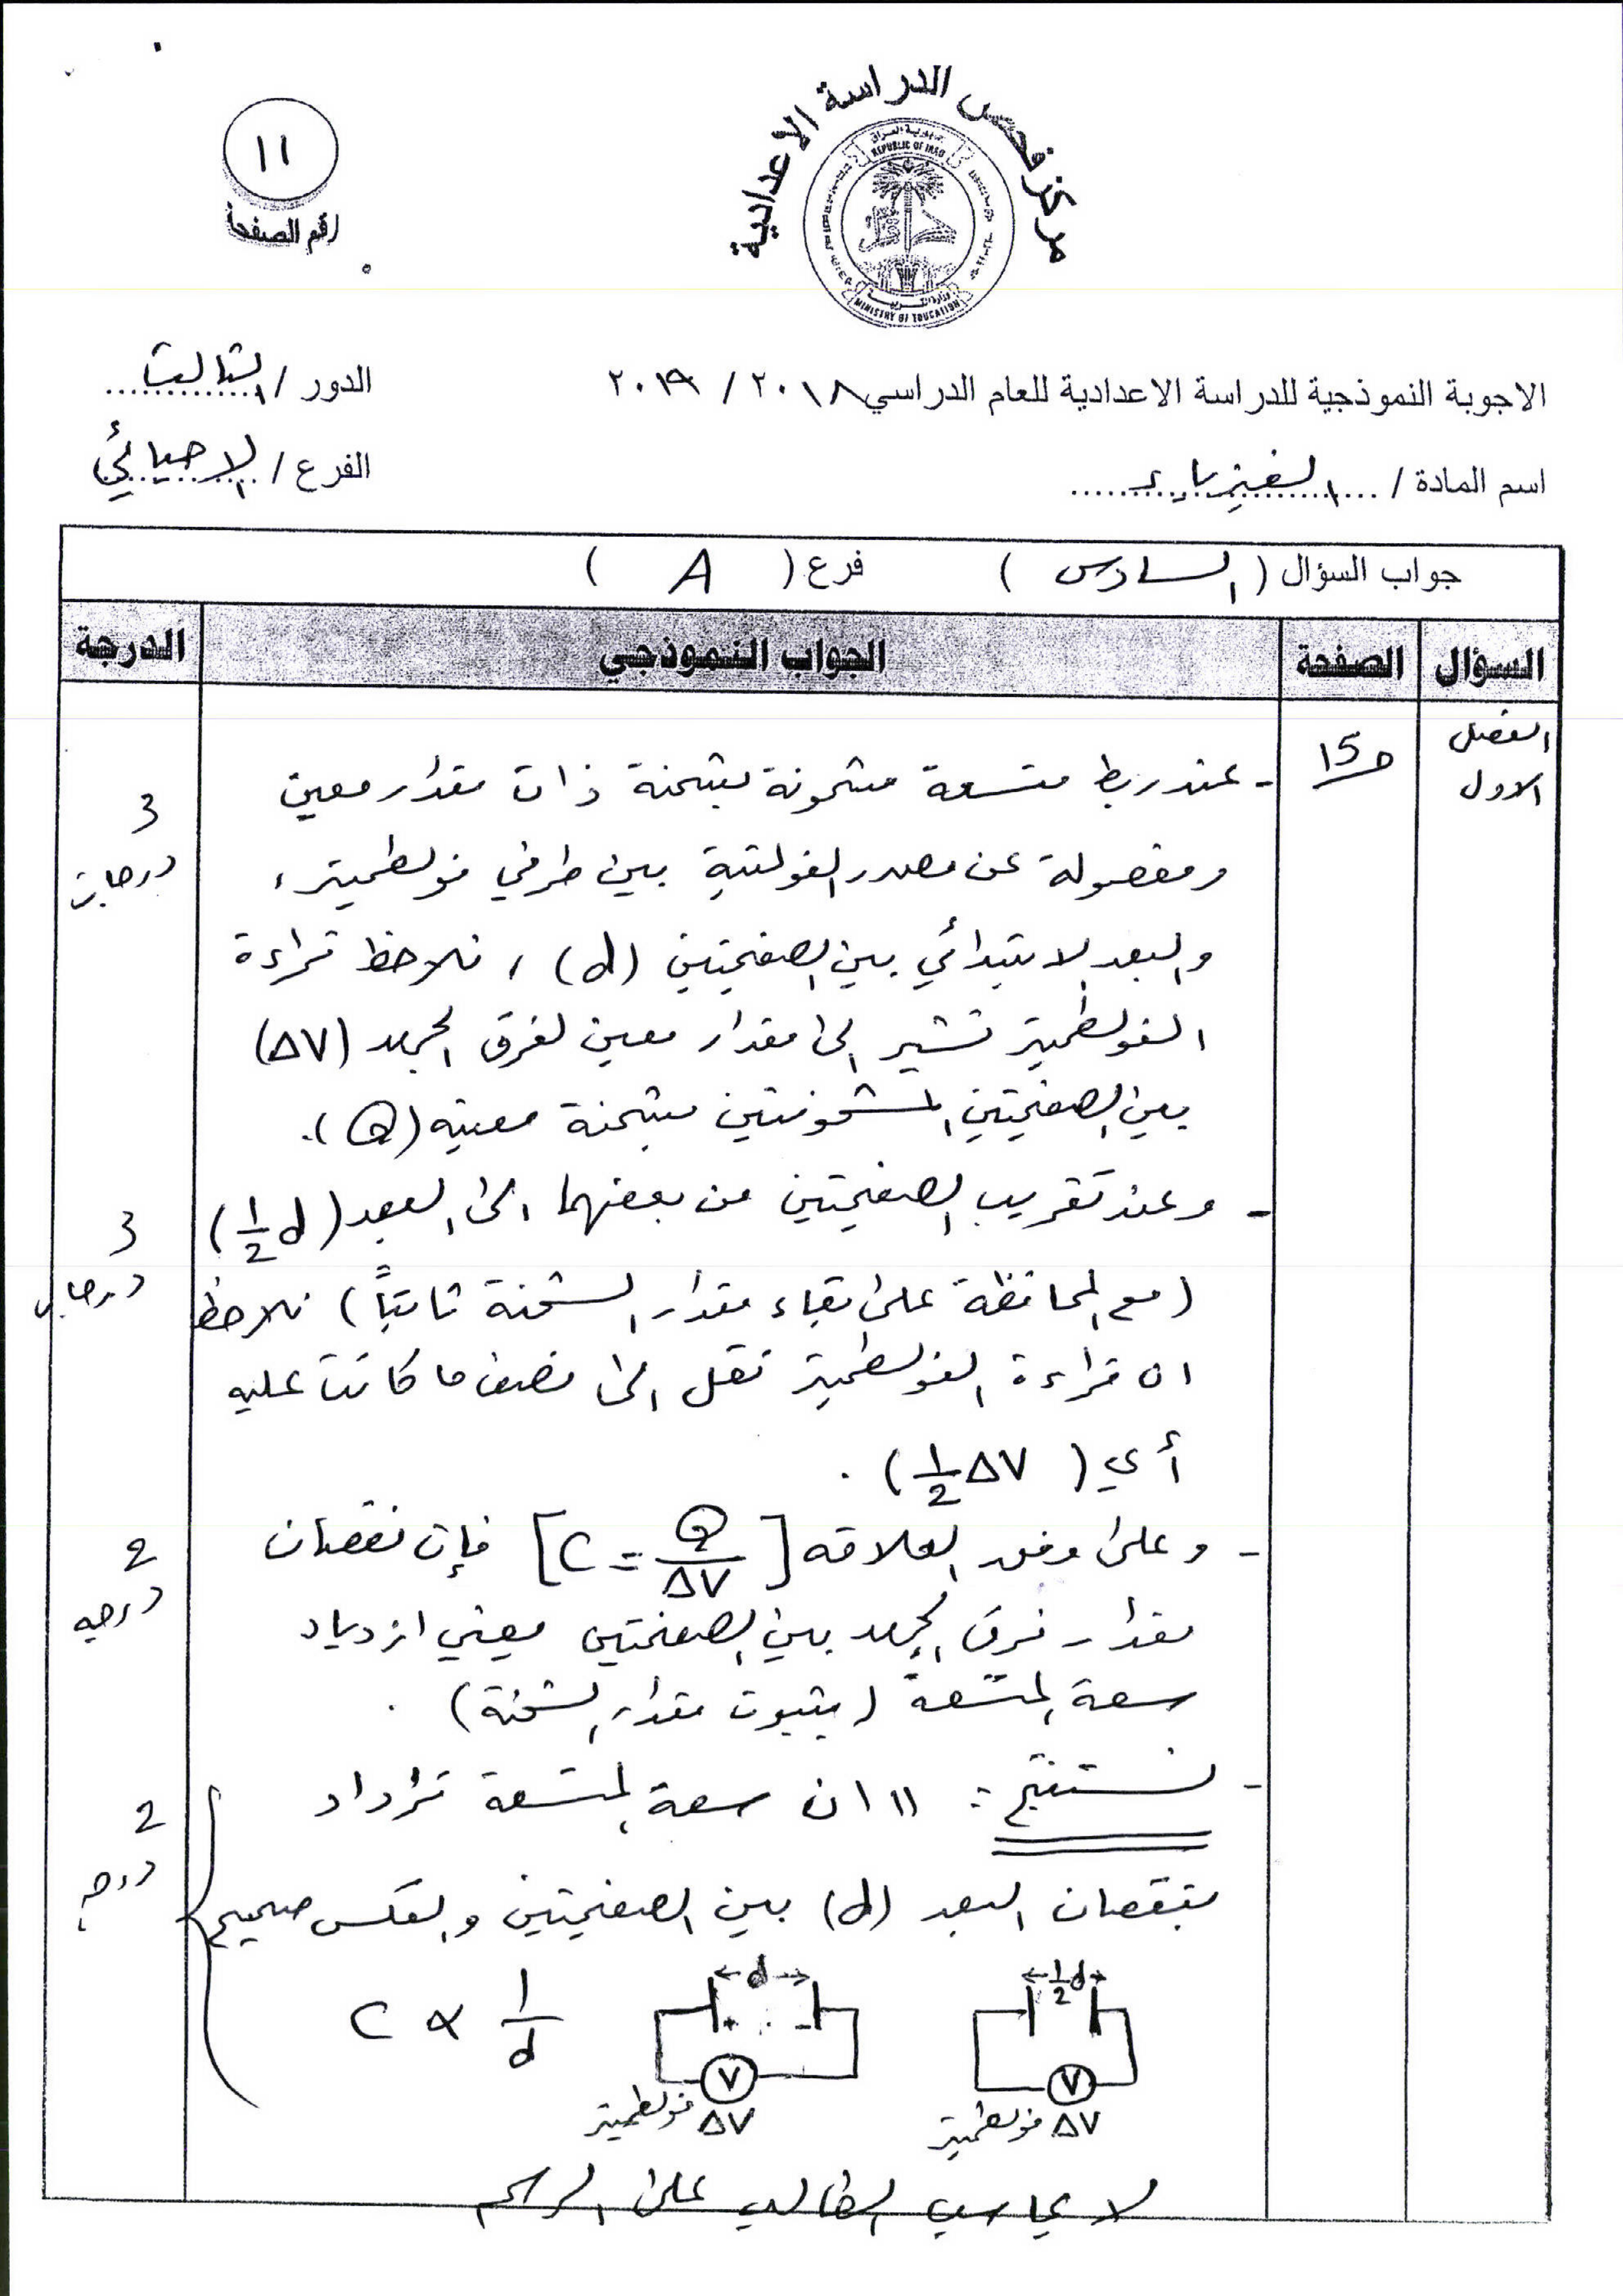 مركز فحص الدراسة الاعدادية
جمهورية العراق
REPUBLIC OF IRAQ
وزارة التربية
MINISTRY OF EDUCATION
١١
رقم الصفحة
الاجوبة النموذجية للدراسة الاعدادية للعام الدراسي ٢٠١٨ / ٢٠١٩
الدور / الثالث
اسم المادة / الفيزياء
الفرع / الاحيائي
جواب السؤال ( السادس ) فرع ( A )
السؤال الصفحة الجواب النموذجي الدرجة
الفصل الاول
ص15
- عند ربط متسعة مشحونة بشحنة ذات مقدار معين
3 درجات
ومفصولة عن مصدر الفولتية بين طرفي فولطميتر،
والبعد الابتدائي بين الصفيحتين (d) ، نلاحظ قراءة
الفولطميتر تشير الى مقدار معين لفرق الجهد (ΔV)
بين الصفيحتين المشحونتين بشحنة معينه (Q).
- وعند تقريب الصفيحتين من بعضهما الى البعد (1/2 d)
3 درجات
(مع المحافظة على بقاء مقدار الشحنة ثابتاً) نلاحظ
ان قراءة الفولطميتر تقل الى نصف ما كانت عليه
أي (1/2 ΔV) .
- وعلى وفق العلاقه [C = Q/ΔV] فإن نقصان
2 درجه
مقدار فرق الجهد بين الصفيحتين يعني ازدياد
سعة المتسعة (بثبوت مقدار الشحنة) .
- نستنتج : " ان سعة المتسعة تزداد
2 درجة
بنقصان البعد (d) بين الصفيحتين والعكس صحيح
C ∝ 1/d
d
+ -
V
ΔV فولطميتر
1/2 d
V
ΔV فولطميتر
لا يحاسب الطالب على الرسم